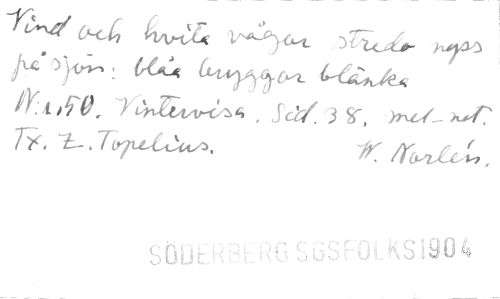 Vind och hvita vågor stredo nyss
på sjön: blåa bryggor blänka
N:r 50. Vintervisa. Sid. 38. mel-not.
Tx. Z. Topelius. W. Norlén.
SÖDERBERG SGSFOLKS1904